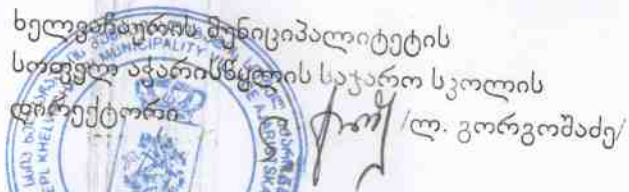 ხელვაჩაურის მუნიციპალიტეტის
სოფელ აჭარისწყლის საჯარო სკოლის
დირექტორი /ლ. გორგოშაძე/
MUNICIPALITY